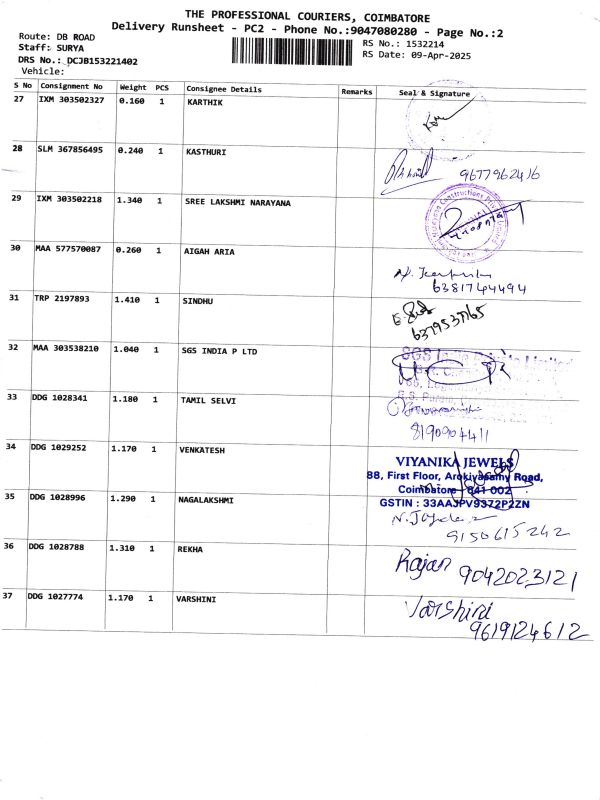 THE PROFESSIONAL COURIERS, COIMBATORE
Delivery Runsheet - PC2 - Phone No.:9047080280 - Page No.:2
Route: DB ROAD
Staff: SURYA
DRS No.: DCJB153221402
Vehicle:
RS No.: 1532214
RS Date: 09-Apr-2025
S No Consignment No Weight PCS Consignee Details Remarks Seal & Signature
27 IXM 303502327 0.160 1 KARTHIK
28 SLM 367856495 0.240 1 KASTHURI
9677962416
29 IXM 303502218 1.340 1 SREE LAKSHMI NARAYANA
30 MAA 577570087 0.260 1 AIGAH ARIA
6381744494
31 TRP 2197893 1.410 1 SINDHU
32 MAA 303538210 1.040 1 SGS INDIA P LTD
SGS Limited
33 DDG 1028341 1.180 1 TAMIL SELVI
34 DDG 1029252 1.170 1 VENKATESH
VIYANIKA JEWELS
88, First Floor, Arokiyasamy Road,
Coimbatore - 641 002
GSTIN : 33AAJPV9372P2ZN
35 DDG 1028996 1.290 1 NAGALAKSHMI
9150615242
36 DDG 1028788 1.310 1 REKHA
Rajan 9042023121
37 DDG 1027774 1.170 1 VARSHINI
Varshini
9619124612